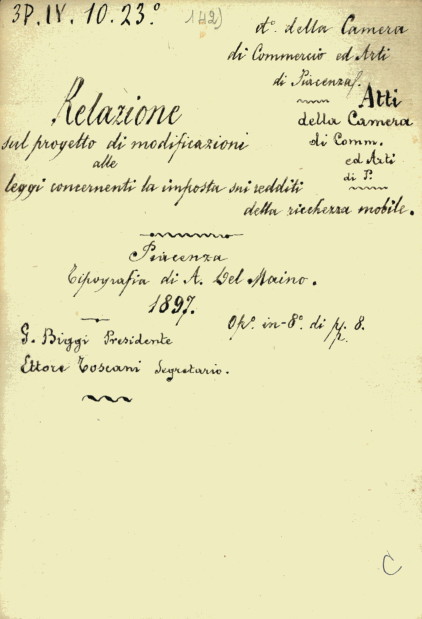 3P. IV. 10. 23.°
142)
At.° della Camera
di Commercio ed Arti
di Piacenza.
Atti
della Camera
di Comm.
ed Arti
di P.
Relazione
sul progetto di modificazioni
alle
leggi concernenti la imposta sui redditi
della ricchezza mobile.
Piacenza
Tipografia di A. Del Maino.
1897.
Op.° in-8.° di pp. 8.
G. Biggi Presidente
Ettore Toscani Segretario.
C